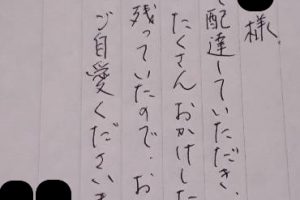 様
配達していただき、
たくさんおかけした
残っていたので、お
ご自愛くださいま